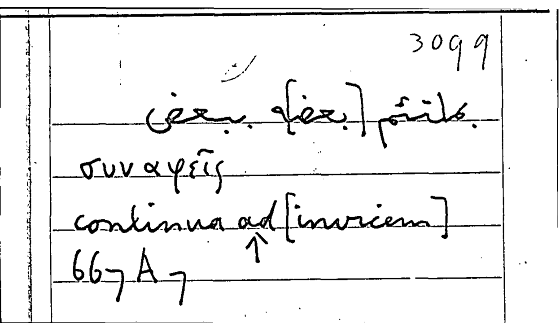 3099
ملتئم ببعض
συναφεῖς
continua ad [invicem]
↑
667 A 7